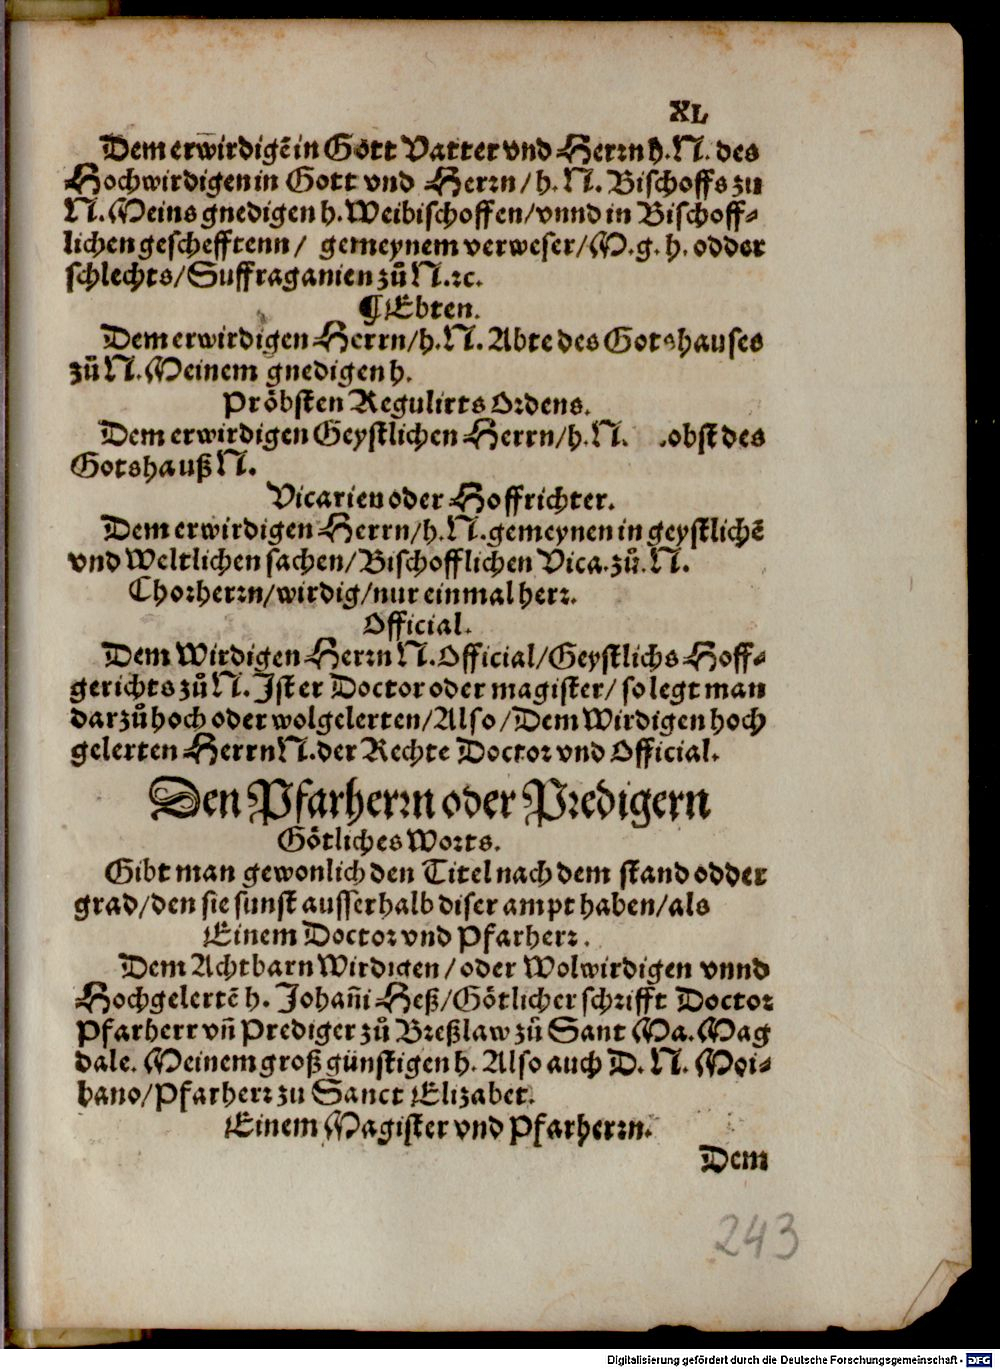 XL
Dem erwirdigẽ in Gott Vatter vnd Herrn h. N. des
Hochwirdigen in Gott vnd Herrn/ h. N. Bischoffs zu
N. Meins gnedigen h. Weibischoffen/ vnnd in Bischoff-
lichen geschefftenn/ gemeynem verweser/ M. g. h. odder
schlechts/ Suffraganien zů N. ꝛc.
¶ Ebten.
Dem erwirdigen Herrn/ h. N. Abte des Gotshauses
zů N. Meinem gnedigen h.
Pröbsten Regulirts Ordens.
Dem erwirdigen Geystlichen Herrn/ h. N. .obst des
Gotshauß N.
Vicarien oder Hoffrichter.
Dem erwirdigen Herrn/ h. N. gemeynen in geystlichẽ
vnd Weltlichen sachen/ Bischofflichen Vica. zů. N.
Chorherrn/ wirdig/ nur einmal herr.
Official.
Dem Wirdigen Herrn N. Official/ Geystlichs Hoff-
gerichts zů N. Ist er Doctor oder magister/ so legt man
darzů hoch oder wolgelerten/ Also/ Dem Wirdigen hoch
gelerten Herrn N. der Rechte Doctor vnd Official.
Den Pfarherrn oder Predigern
Götliches Worts.
Gibt man gewonlich den Titel nach dem stand odder
grad/ den sie sunst ausserhalb diser ampt haben/ als
Einem Doctor vnd Pfarherr.
Dem Achtbarn Wirdigen/ oder Wolwirdigen vnnd
Hochgelertẽ h. Johañi Heß/ Götlicher schrifft Doctor
Pfarherr vñ Prediger zů Breßlaw zů Sant Ma. Mag
dale. Meinem groß günstigen h. Also auch D. N. Moi-
bano/ Pfarherr zu Sanct Elizabet.
Einem Magister vnd Pfarherrn.
Dem
243
Digitalisierung gefördert durch die Deutsche Forschungsgemeinschaft - DFG